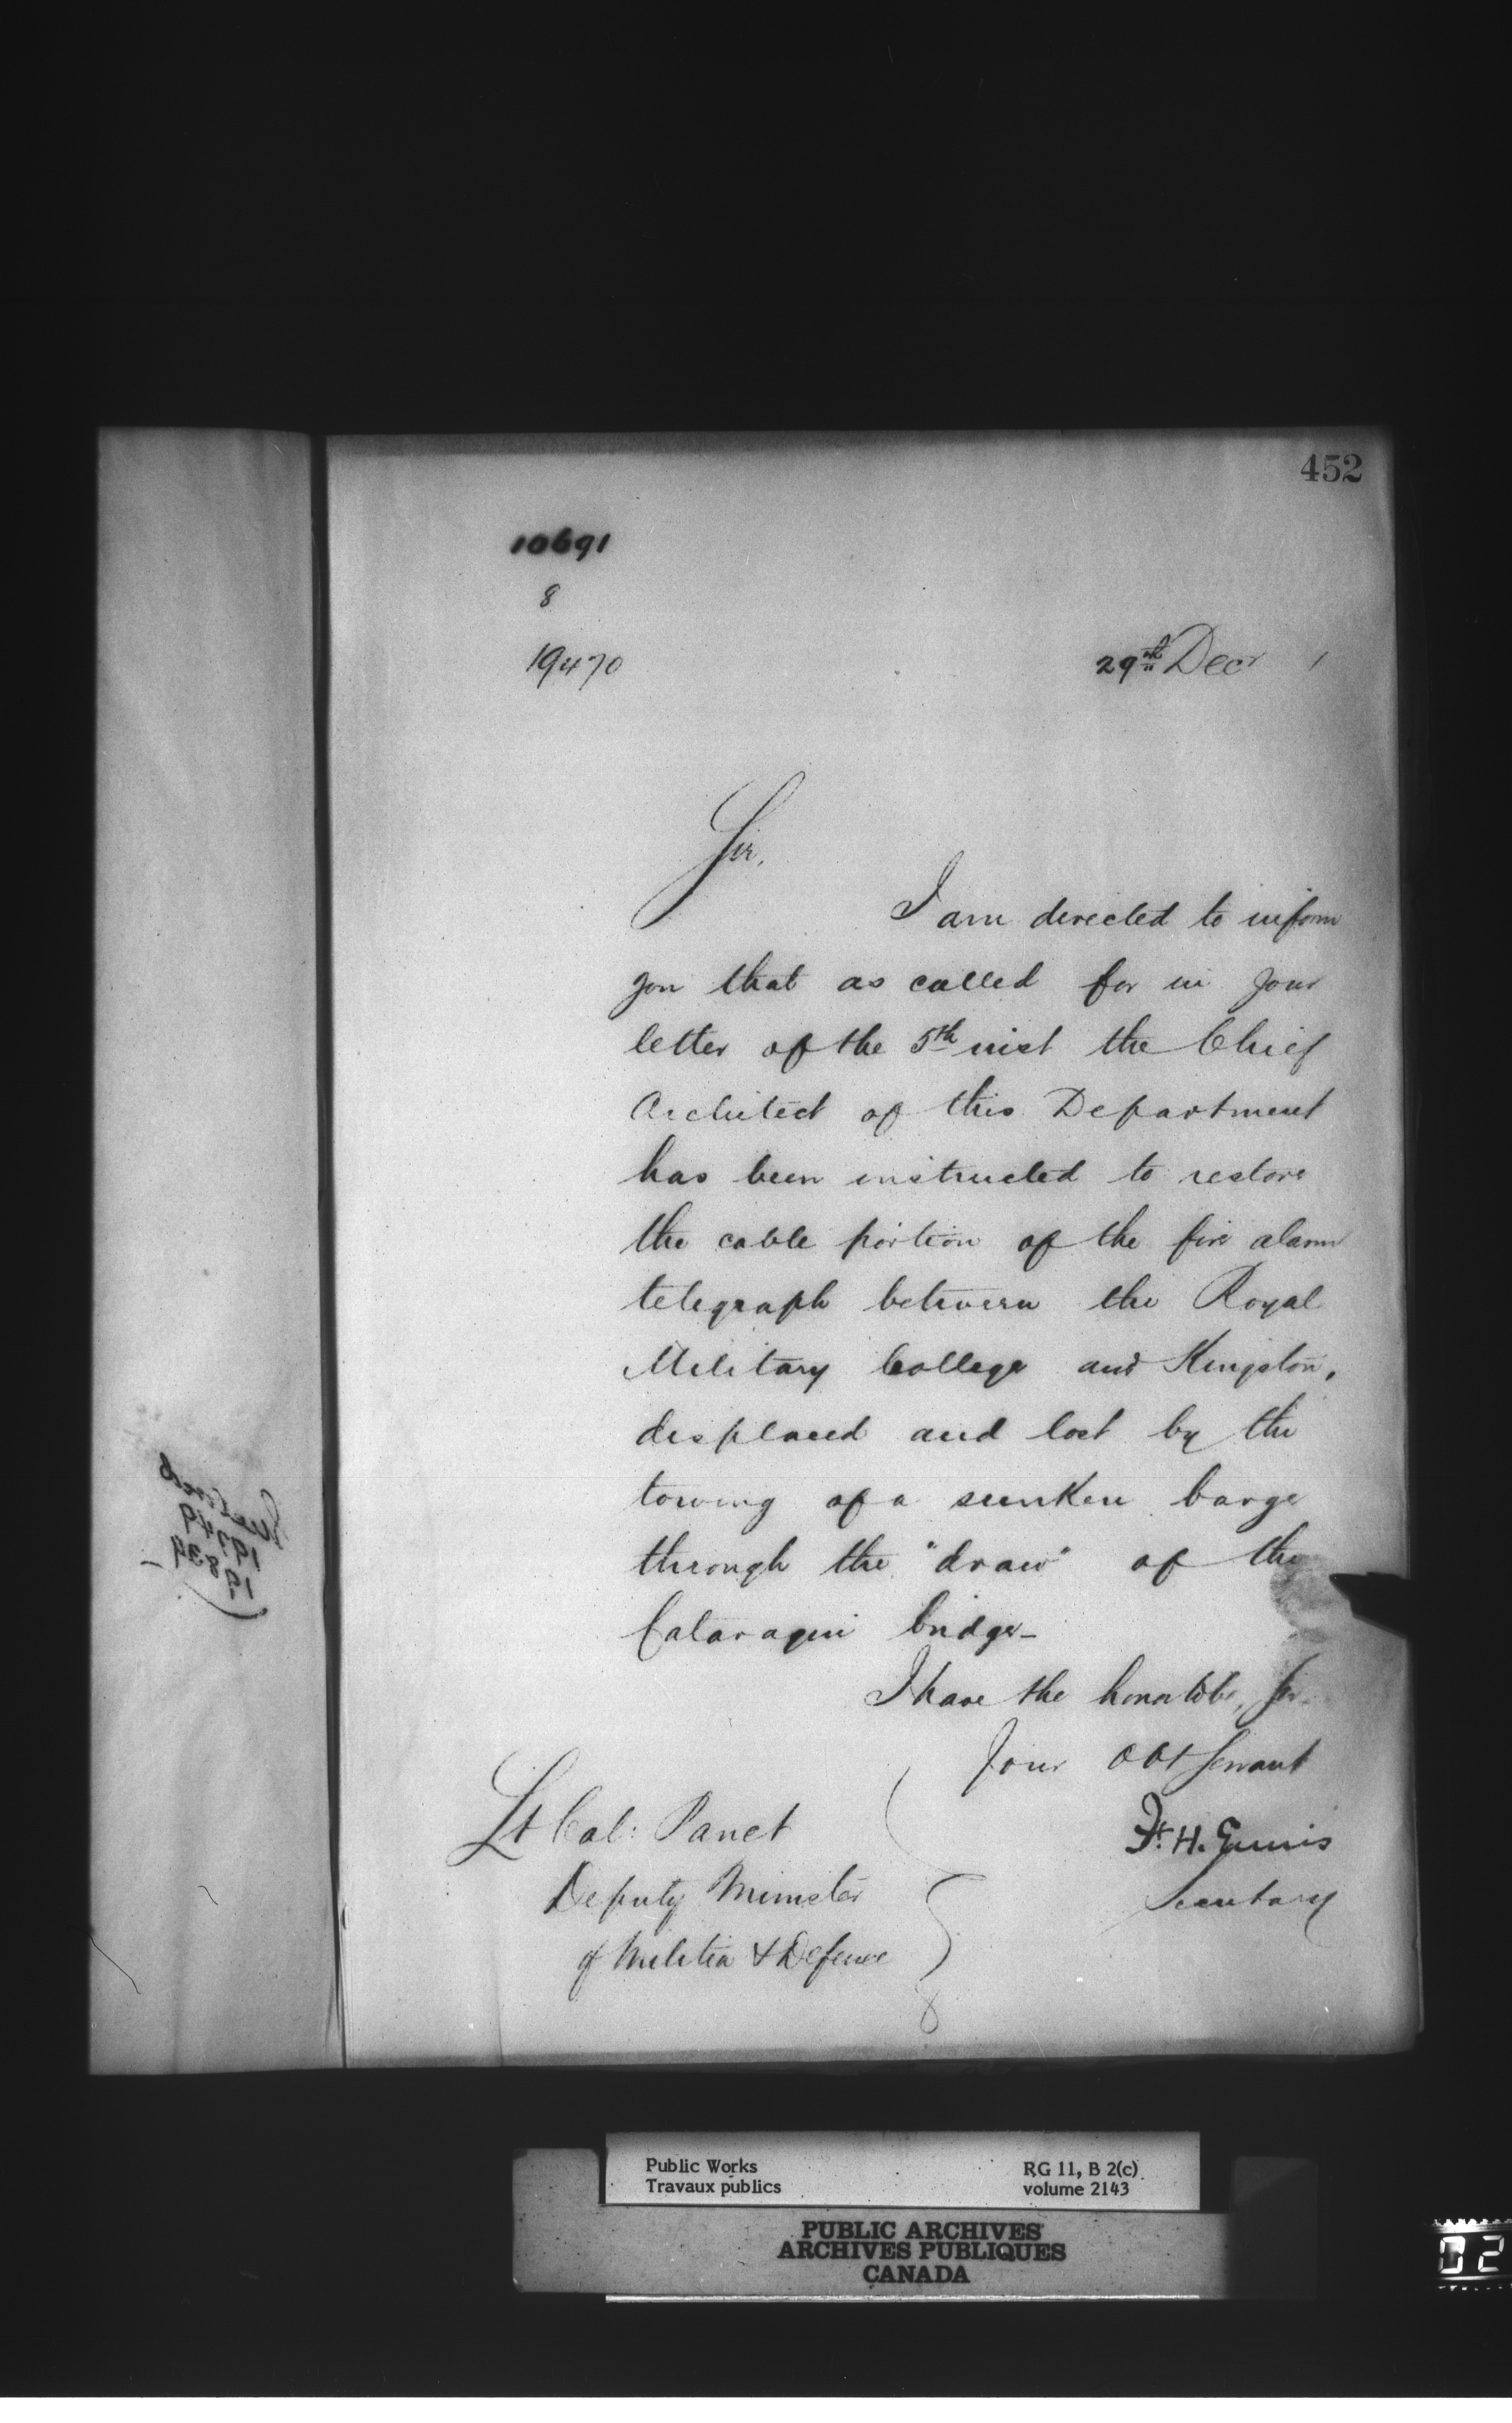 452
10691
8
19470
29th Decr 1
Sir,
I am directed to inform
you that as called for in your
letter of the 5th inst the Chief
Architect of this Department
has been instructed to restore
the cable portion of the fire alarm
telegraph between the Royal
Military College and Kingston,
displaced and lost by the
towing of a sunken barge
through the "draw" of the
Cataraqui bridge-
I have the honor to be, Sir
Your Obt Servant
F. H. Ennis
Secretary
Lt Col: Panet
Deputy Minister
of Militia & Defence
Public Works
Travaux publics
RG 11, B 2(c)
volume 2143
PUBLIC ARCHIVES
ARCHIVES PUBLIQUES
CANADA
02